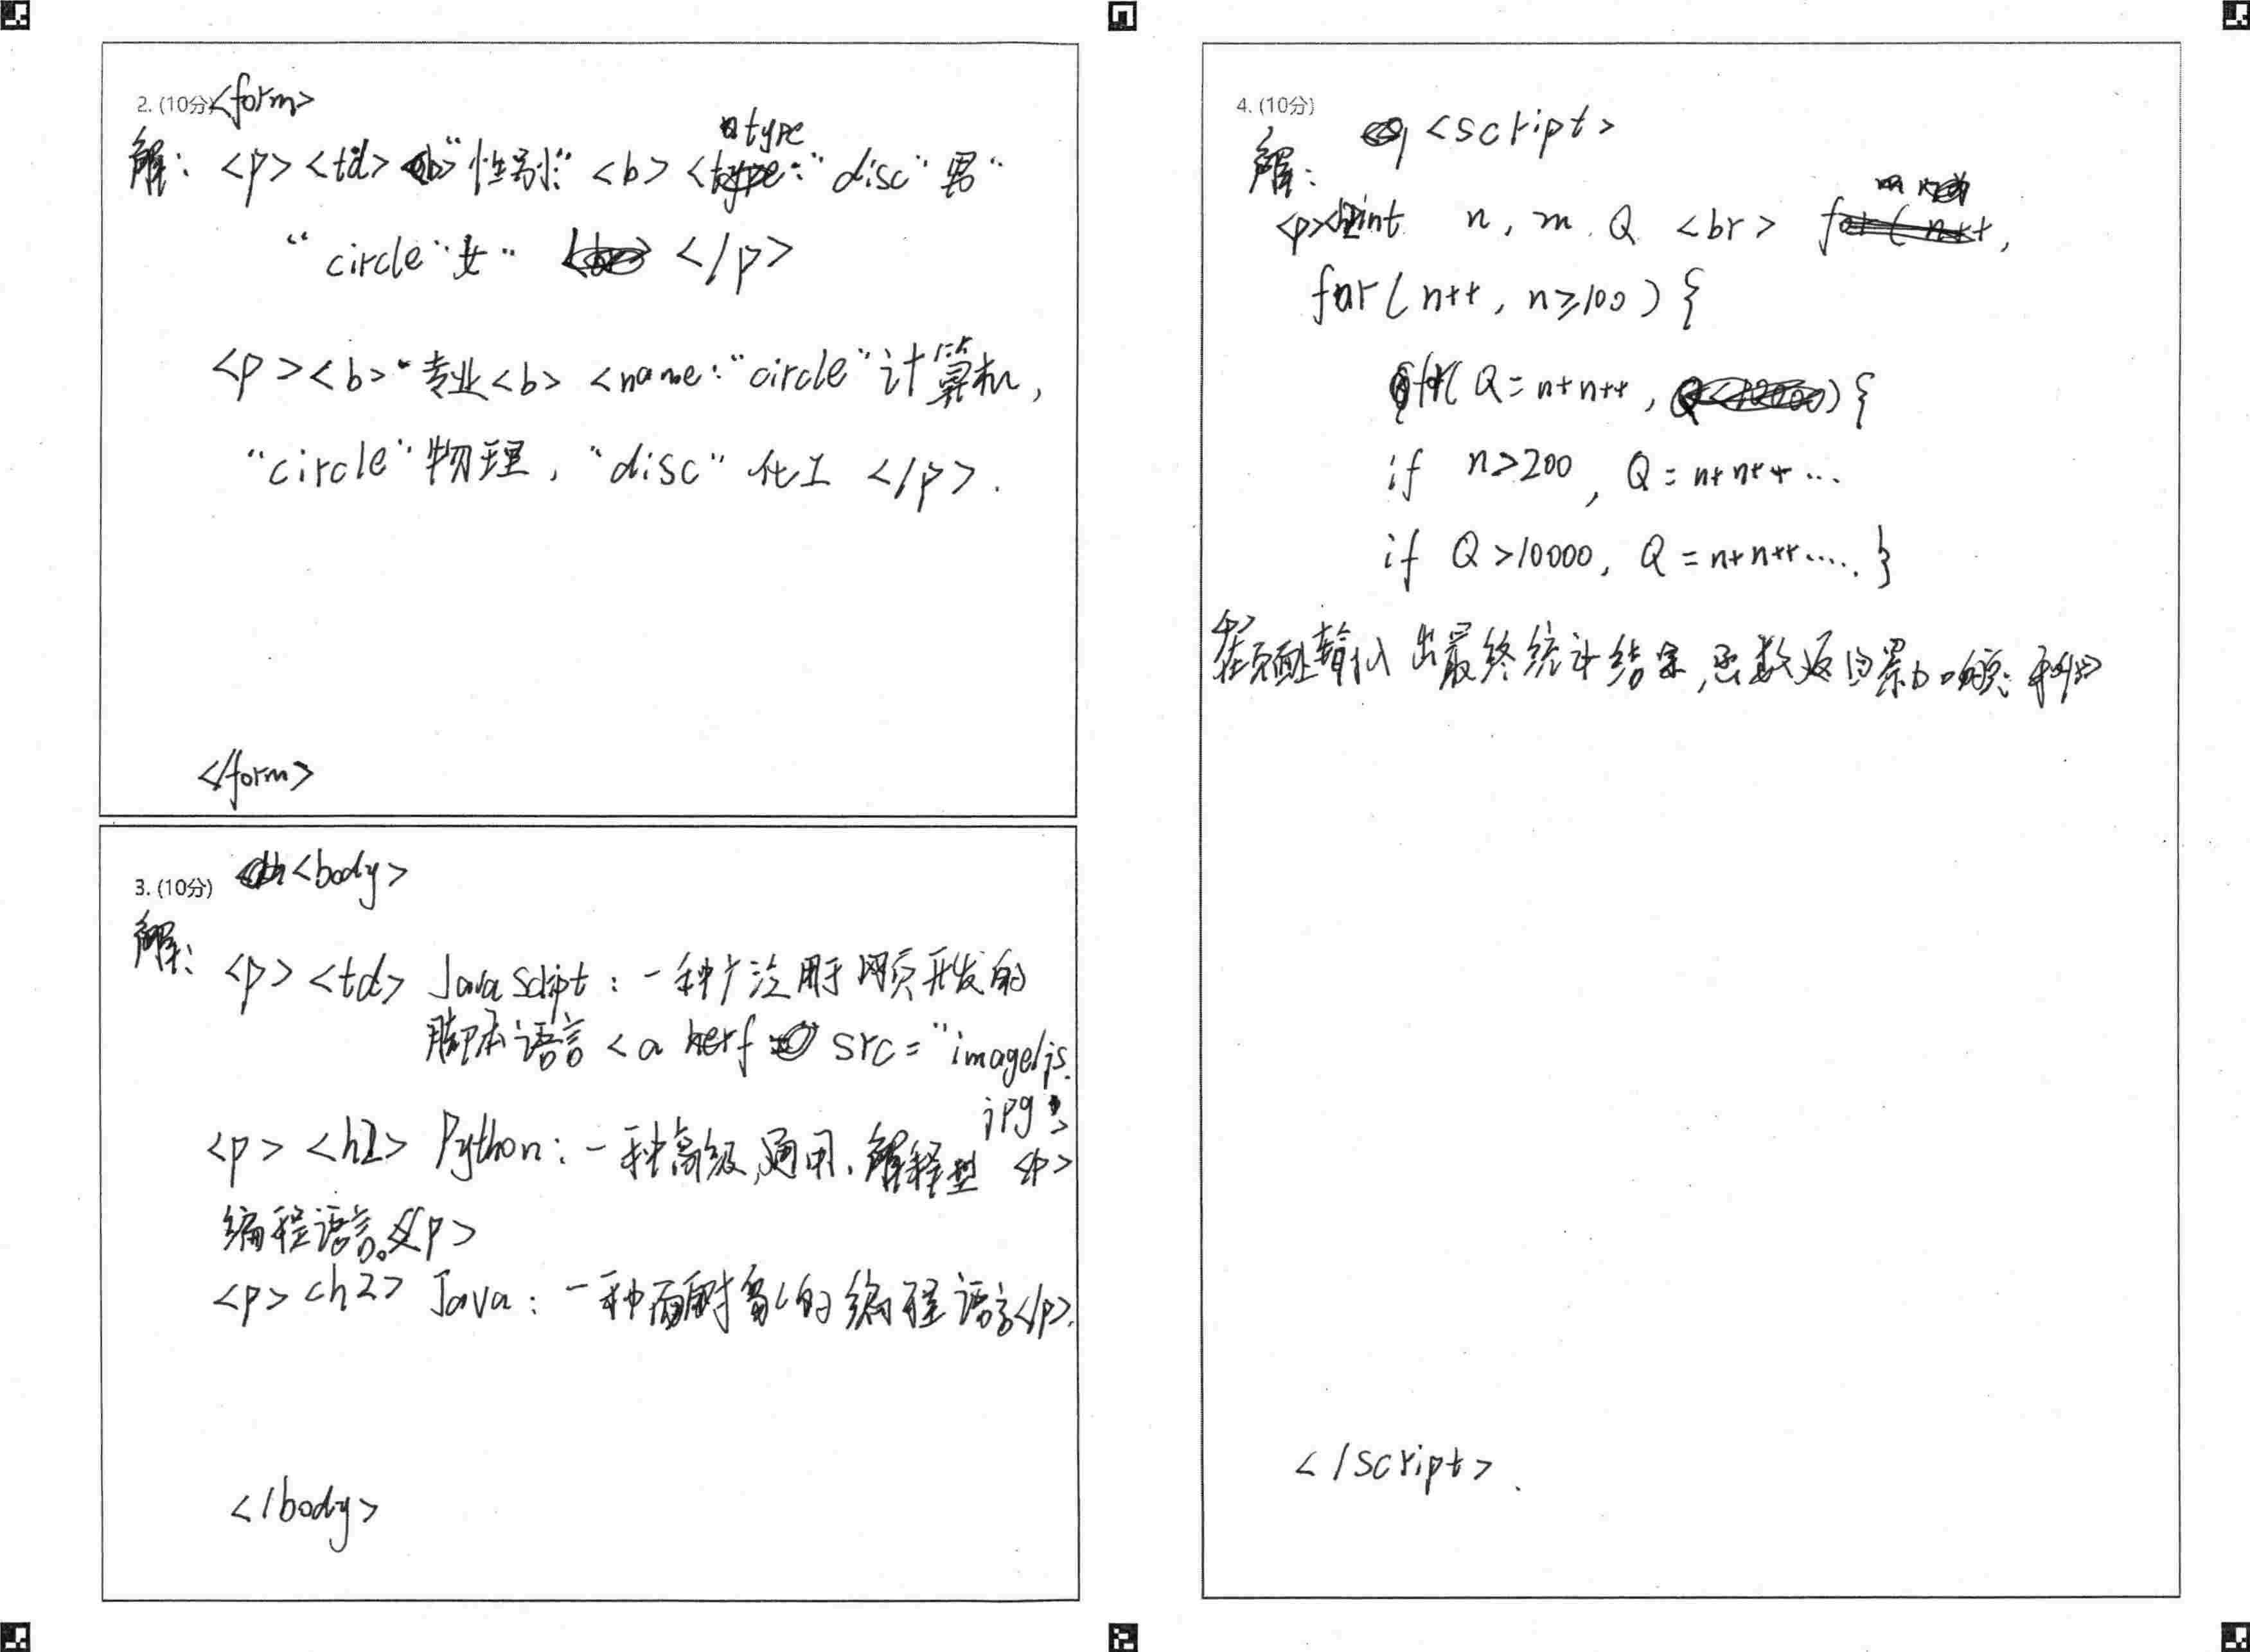 2. (10分) <form>
type
解: <p><td> "性别:" <b> < :"disc"男"
"circle"女" </p>
<p><b>"专业<b> <name:"circle"计算机,
"circle"物理, "disc"化工 </p>.
</form>
3. (10分) <body>
解: <p><td> Java Script: 一种广泛用于网页开发的
脚本语言 <a herf src="image/js.
jpg">
<p><h2> Python: 一种高级,通用、解释型 <p>
编程语言。<p>
<p><h2> Java: 一种面向对象的编程语言</p>.
</body>
4. (10分) <script>
解:
<p> int n, m, Q <br>
for(n++, n≥100){
(Q=n+n++, ){
if n>200, Q=n+n++...
if Q>10000, Q=n+n++....}
在页面上输出最终统计结果,函数返回累加
</script>.